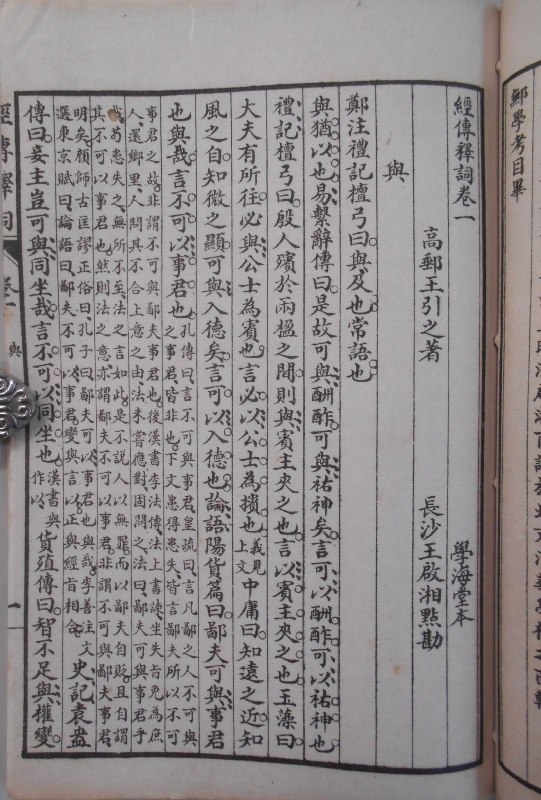 學考目畢
經傳釋詞卷一
學海堂本
高郵王引之著
長沙王啟湘點勘
與
鄭注禮記檀弓曰與及也常語也
與猶以也易繫辭傳曰是故可與酬酢可與祐神矣言可以酬酢可以祐神也
禮記檀弓曰殷人殯於兩楹之間則與賓主夾之也言以賓主夾之也玉藻曰
大夫有所往必與公士為賓也言必以公士為擯也義見上文中庸曰知遠之近知
風之自知微之顯可與入德矣言可以入德也論語陽貨篇曰鄙夫可與事君
也與哉言不可以事君也孔傳曰言不可與事君皇疏曰言凡鄙之人不可與
之事君皆非也下文患得患失皆言鄙夫所以不可
事君之故非謂不可與鄙夫事君也後漢書李法傳法上書諫坐失旨免為庶
人還鄉里人問其不合上意之由法未嘗應對固問之法曰鄙夫可與事君乎
哉苟患失之無所不至法之言如此是不說人以無罪而以鄙夫自貶且自謂
其不可以事君也然則法之意亦謂鄙夫不可以事君非謂不可與鄙夫事君
明矣顏師古匡謬正俗曰孔子曰鄙夫可以事君也與哉李善注文
選東京賦曰論語曰鄙夫不可以事君變與言以正與經旨相合
史記袁盎
傳曰妾主豈可與同坐哉言不可以同坐也漢書與作以貨殖傳曰智不足與權變
經傳釋詞
卷一
與
一